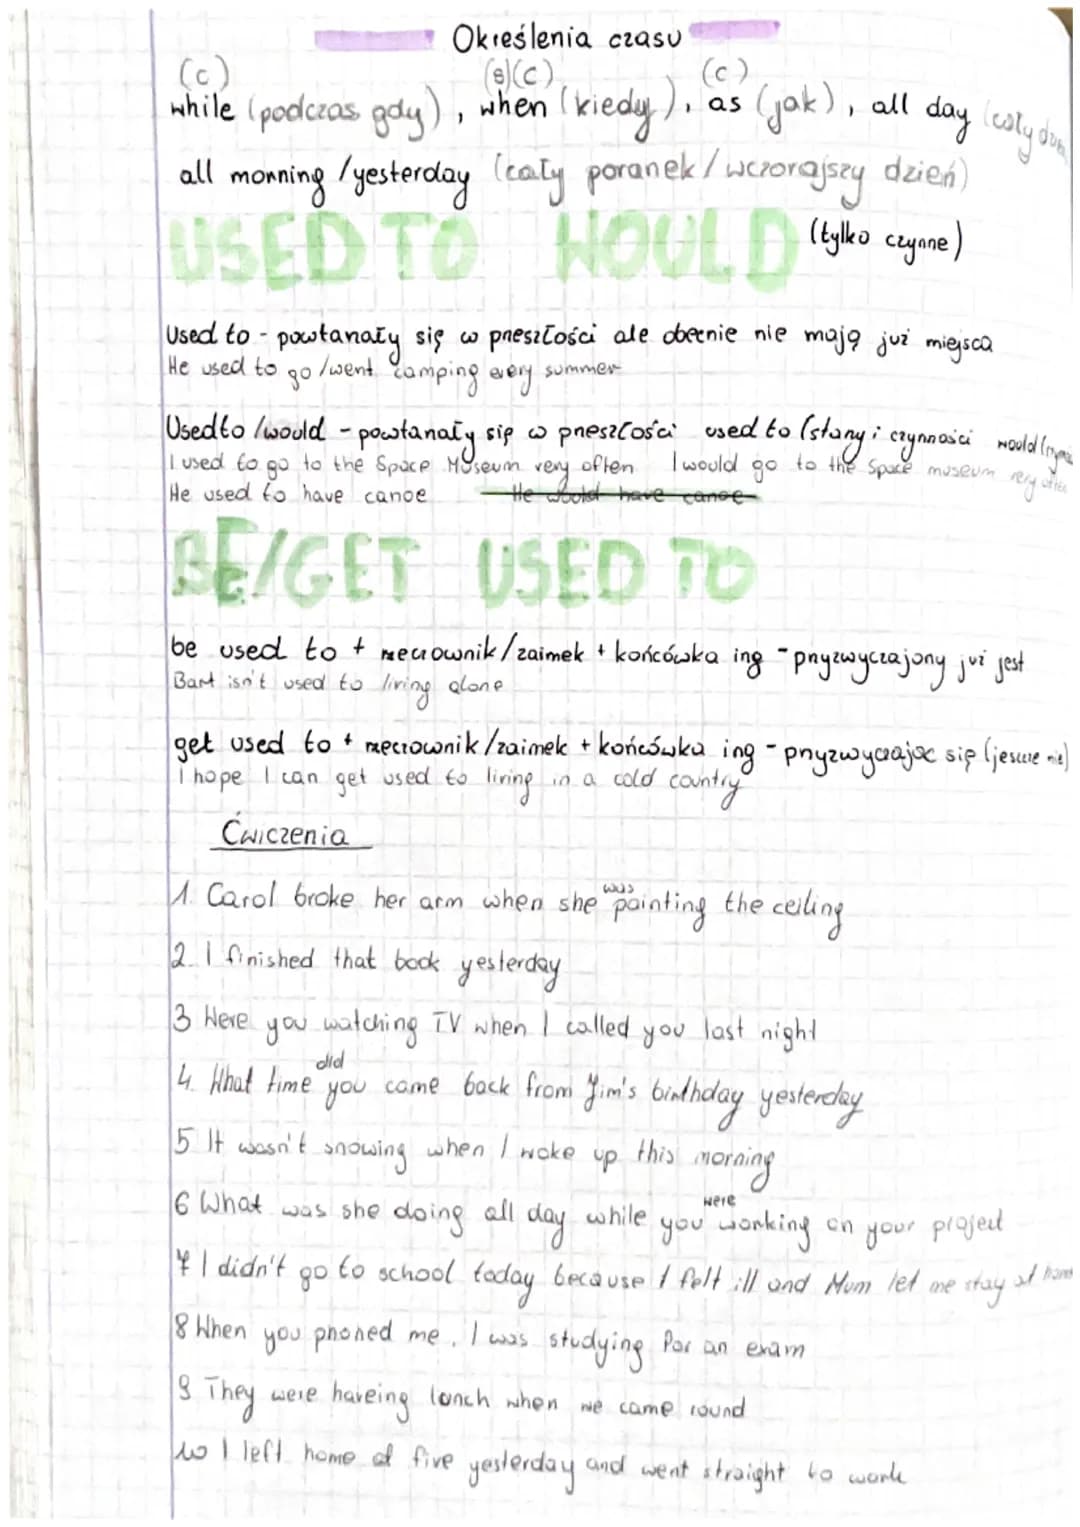 Określenia czasu
(c) (s)(c) (c)
while (podczas gdy), when (kiedy), as (jak), all day (cały
all morning /yesterday (cały poranek/wczorajszy dzień)
USED TO WOULD (tylko czynne)
Used to - powtarzały się w przeszłości ale obecnie nie mają już miejsca
He used to go /went camping every summer
Used to /would - powtarzały się w przeszłości used to (stany i czynności would
I used to go to the Space Museum very often I would go to the Space museum very often
He used to have canoe He would have canoe
BE/GET USED TO
be used to + rzeczownik/zaimek + końcówka ing - przyzwyczajony już jest
Bart isn't used to living alone
get used to + rzeczownik/zaimek + końcówka ing - przyzwyczajać się (jeszcze nie)
I hope I can get used to living in a cold country
Ćwiczenia
1. Carol broke her arm when she was painting the ceiling
2. I finished that book yesterday
3 Were you watching TV when I called you last night
4. What time did you came back from Jim's birthday yesterday
5 It wasn't snowing when I woke up this morning
6 What was she doing all day while you were working on your project
7 I didn't go to school today because I felt ill and Mum let me stay at home
8 When you phoned me, I was studying for an exam
9 They were haveing lunch when we came round
10 I left home at five yesterday and went straight to work